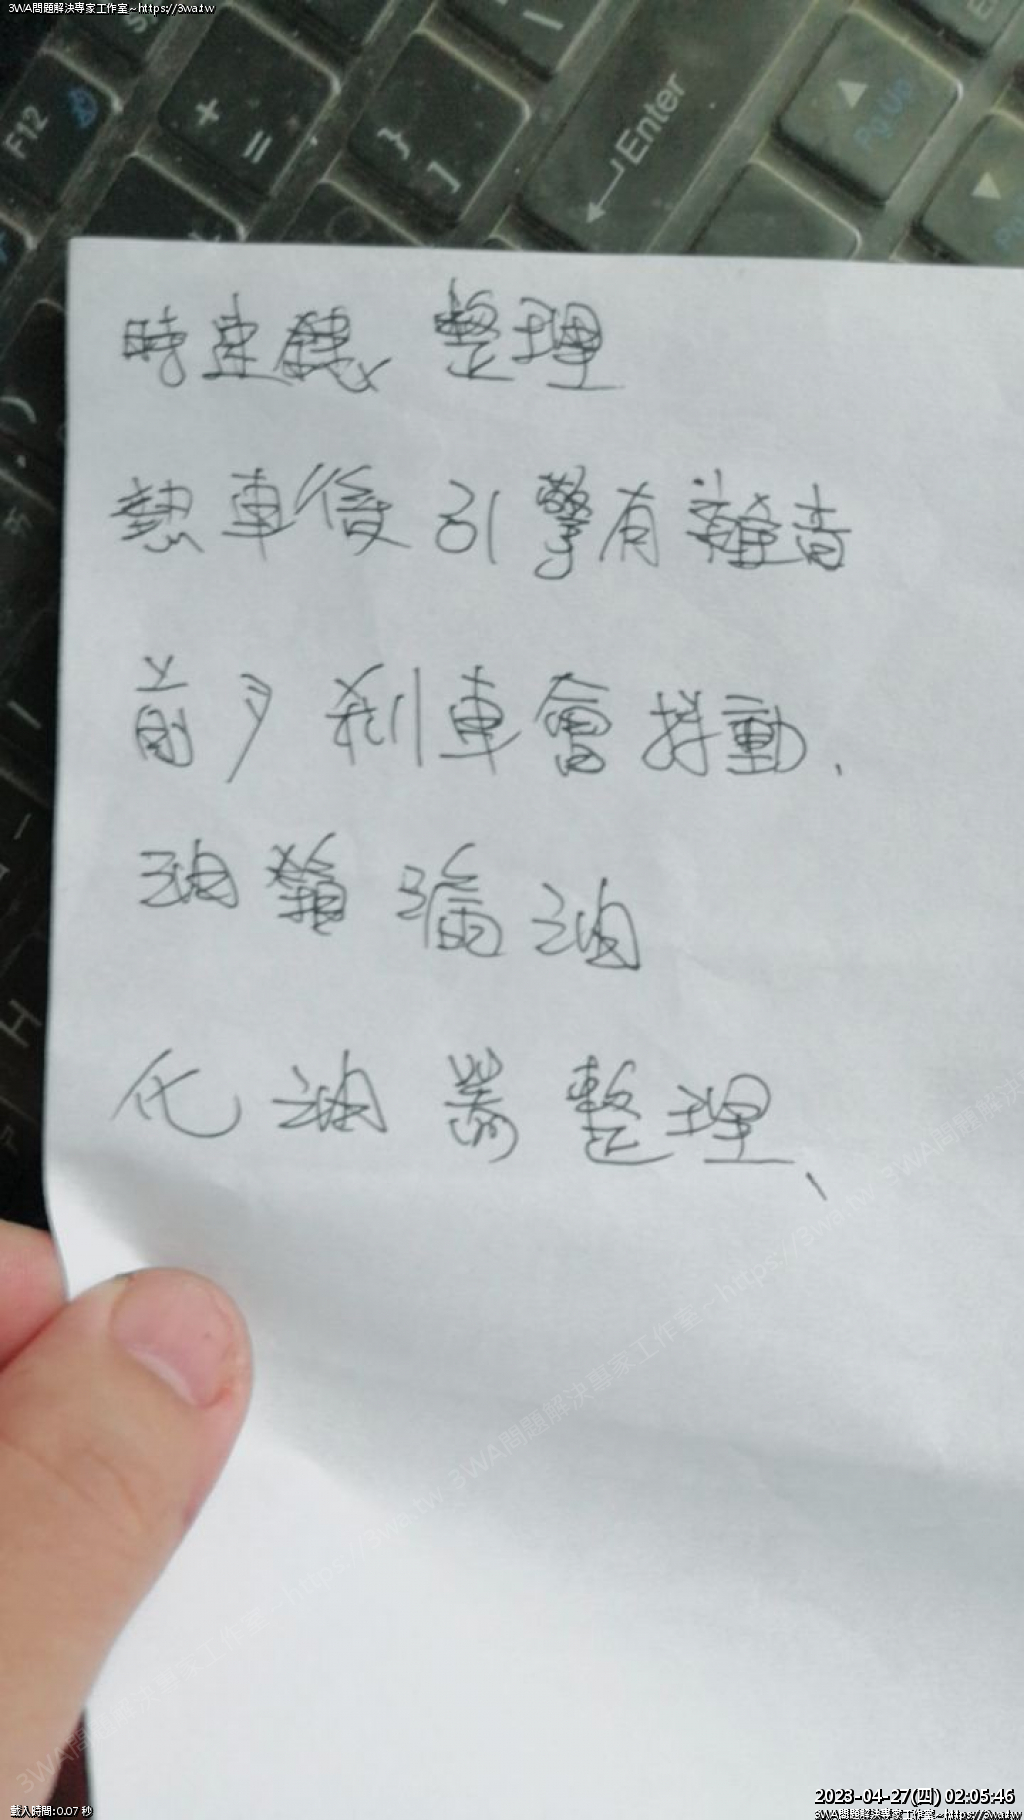 3WA問題解決專家工作室~https://3wa.tw
F12
+
=
}
]
Enter
PgUp
時速錶 整理
熱車後引擎有雜音
前 剎車會抖動.
油箱漏油
化油器整理、
3WA問題解決專家工作室~https://3wa.tw
載入時間:0.07 秒
2023-04-27(四) 02:05:46
3WA問題解決專家工作室~https://3wa.tw